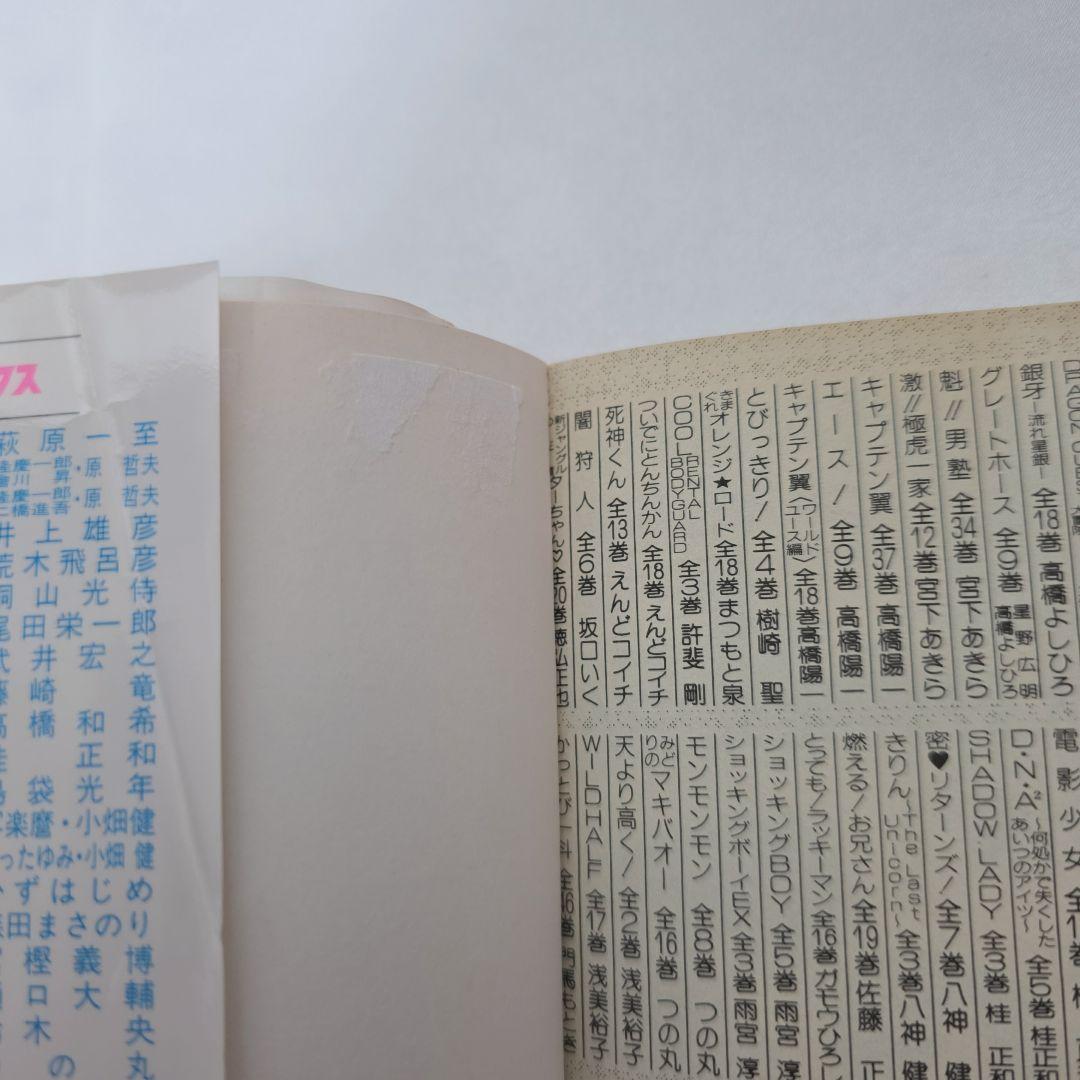 クス
萩原一至
隆慶一郎・原哲夫
隆慶一郎
二橋進吾・原哲夫
井上雄彦
荒木飛呂彦
桐山光侍
尾田栄一郎
武井宏之
藤崎竜
高橋和希
桂正和
島袋光年
写楽麿・小畑健
ほったゆみ・小畑健
かずはじめ
森田まさのり
冨樫義博
樋口大輔
鈴木央
つの丸
銀牙―流れ星銀― 全18巻 高橋よしひろ
グレートホース 全9巻 星野広明 高橋よしひろ
魁!!男塾 全34巻 宮下あきら
激!!極虎一家 全12巻 宮下あきら
キャプテン翼 全37巻 高橋陽一
エース! 全9巻 高橋陽一
キャプテン翼〈ワールドユース編〉全18巻 高橋陽一
とびっきり! 全4巻 樹崎聖
きまぐれオレンジ★ロード 全18巻 まつもと泉
COOL RENTAL BODYGUARD 全3巻 許斐剛
ついでにとんちんかん 全18巻 えんどコイチ
死神くん 全13巻 えんどコイチ
闇狩人 全6巻 坂口いく
新ジャングルの王者ターちゃん♡ 全20巻 徳弘正也
電影少女
D・N・A² ～何処かで失くしたあいつのアイツ～ 全5巻 桂正和
SHADOW LADY 全3巻 桂正和
密♥リターンズ! 全7巻 八神健
きりん～The Last Unicorn～ 全3巻 八神健
燃える!お兄さん 全19巻 佐藤正
とっても!ラッキーマン 全16巻 ガモウひろし
ショッキングBOY 全5巻 雨宮淳
ショッキングボーイEX 全3巻 雨宮淳
モンモンモン 全8巻 つの丸
みどりのマキバオー 全16巻 つの丸
天より高く! 全2巻 浅美裕子
WILD HALF 全17巻 浅美裕子
かっとび一斗 全46巻 門馬もとき